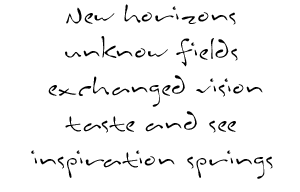 New horizons
unknow fields
exchanged vision
taste and see
inspiration springs